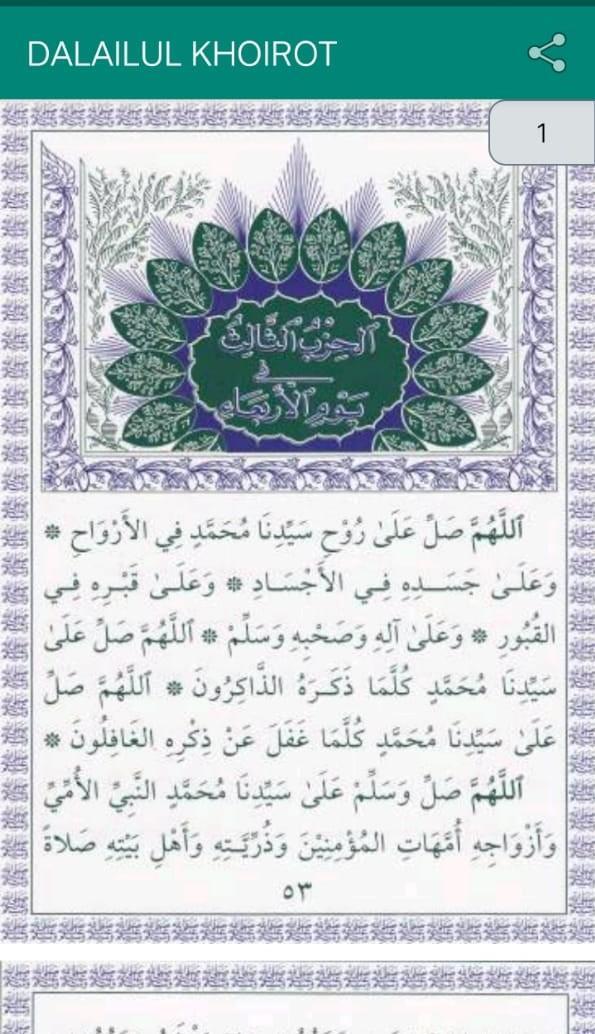 DALAILUL KHOIROT
1
اَلْحِزْبُ الثَّالِثُ
فِي
يَوْمِ الْأَرْبِعَاءِ
اَللَّهُمَّ صَلِّ عَلَىٰ رُوْحِ سَيِّدِنَا مُحَمَّدٍ فِي الأَرْوَاحِ *
وَعَلَىٰ جَسَدِهِ فِي الأَجْسَادِ * وَعَلَىٰ قَبْرِهِ فِي
القُبُورِ * وَعَلَىٰ آلِهِ وَصَحْبِهِ وَسَلِّمْ * اَللَّهُمَّ صَلِّ عَلَىٰ
سَيِّدِنَا مُحَمَّدٍ كُلَّمَا ذَكَرَهُ الذَّاكِرُونَ * اَللَّهُمَّ صَلِّ
عَلَىٰ سَيِّدِنَا مُحَمَّدٍ كُلَّمَا غَفَلَ عَنْ ذِكْرِهِ الغَافِلُونَ *
اَللَّهُمَّ صَلِّ وَسَلِّمْ عَلَىٰ سَيِّدِنَا مُحَمَّدٍ النَّبِيِّ الأُمِّيِّ
وَأَزْوَاجِهِ أُمَّهَاتِ المُؤْمِنِيْنَ وَذُرِّيَّتِهِ وَأَهْلِ بَيْتِهِ صَلاةً
٥٣